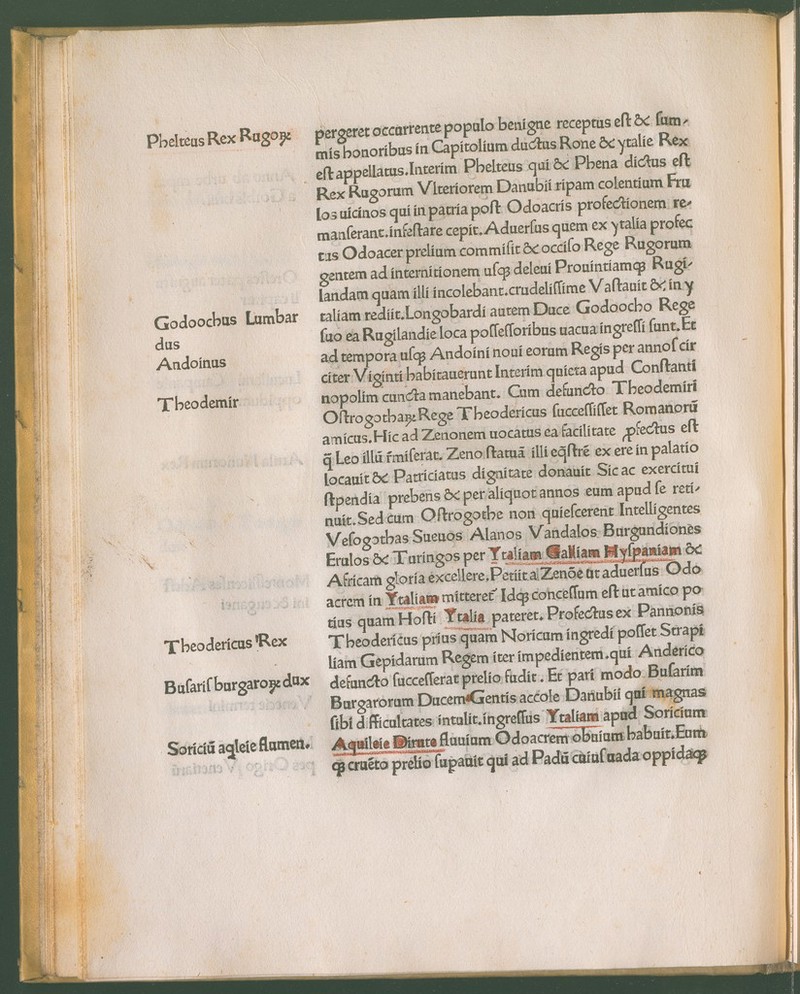 Phelteus Rex Rugoꝝ
pergeret occurrente populo benigne receptus eſt & ſum⸗
mis honoribus in Capitolium ductus Rone & ytalie Rex
eſt appellatus. Interim Phelteus qui & Phena dictus eſt
Rex Rugorum Vlteriorem Danubii ripam colentium Fru
los uicinos qui in patria poſt Odoacris profectionem re⸗
manſerant. infeſtare cepit. Aduerſus quem ex ytalia profec
tus Odoacer prelium commiſit & occiſo Rege Rugorum
gentem ad internitionem uſqꝫ deleui Prouintiamqꝫ Rugi⸗
landam quam illi incolebant. crudeliſſime Vaſtauit & in y
taliam rediit. Longobardi autem Duce Godoocho Rege
ſuo ea Rugilandie loca poſſeſſoribus uacua ingreſſi ſunt. Et
ad tempora uſqꝫ Andoini noui eorum Regis per annoſ cir
citer Viginti habitauerunt Interim quieta apud Conſtanti
nopolim cuncta manebant. Cum defuncto Theodemiri
Oſtrogothaꝝ Rege Theodericus ſucceſſiſſet Romanorū
amicus. Hic ad Zenonem uocatus ea facilitate ꝓfectus eſt
q̄ Leo illū r̄miſerat. Zeno ſtatuā illi eq̄ſtrē ex ere in palatio
locauit & Patriciatus dignitate donauit Sic ac exercitui
ſtpendia prebens & per aliquot annos eum apud ſe reti⸗
nuit. Sed cum Oſtrogothe non quieſcerent Intelligentes
Veſogothas Sueuos Alanos Vandalos Burgundiones
Erulos & Turingos per Ytaliam Galliam Hyſpaniam &
Africam gloria excellere. Petiit a Zenōe ut aduerſus Odo
acrem in Ytaliam mitteret̃ Idqꝫ conceſſum eſt ut amico po
tius quam Hoſti Ytalia pateret. Profectus ex Pannonis
Theodericus prius quam Noricum ingredi poſſet Strapi
liam Gepidarum Regem iter impedientem. qui Anderico
defuncto ſucceſſerat prelio fudit. Et pari modo Buſarim
Burgarorum Ducem Gentis accole Danubii qui magnas
ſibi difficultates intulit. ingreſſus Ytaliam apud Soricium
Aquileie Dirute fluuium Odoacrem obuium habuit. Eum
qꝫ cruēto prelio ſupauit qui ad Padū cuiuſ uada oppidaqꝫ
Godoochus Lumbar
dus
Andoinus
Theodemir
Theodericus Rex
Buſariſ burgaroꝝ dux
Soriciū aq̄leie flumen.